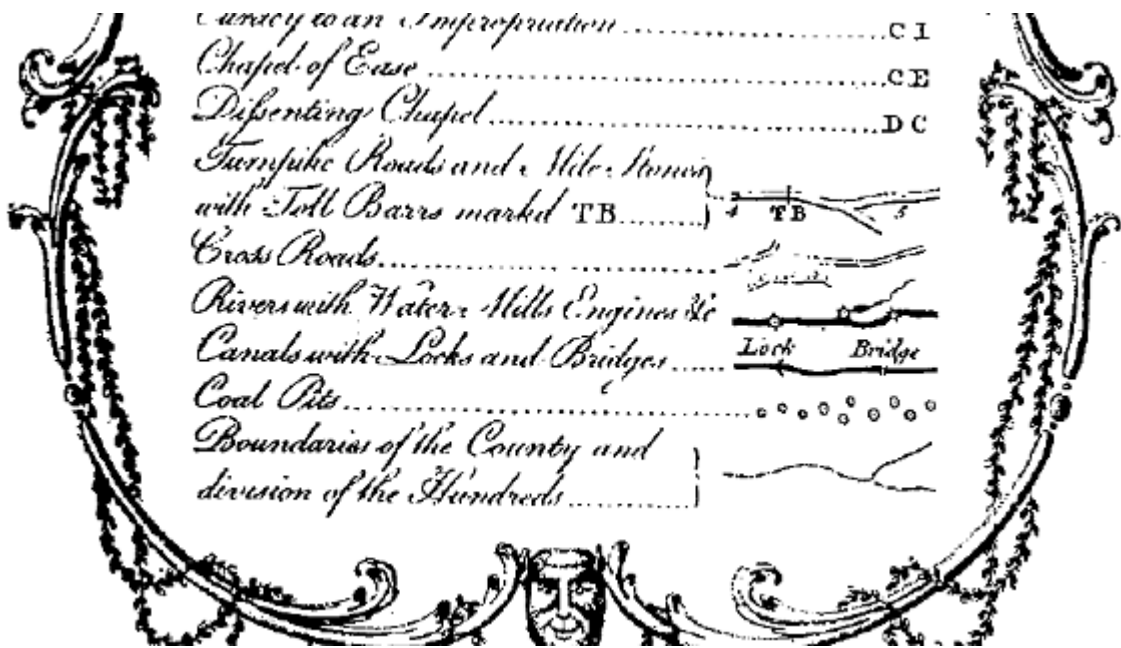 Curacy to an Impropriation ........................ C I
Chapel of Ease ........................ C E
Dissenting Chapel ........................ D C
Turnpike Roads and Mile Stones
with Toll Barrs markd TB ........ 4 TB 5
Cross Roads ........................
Rivers with Water Mills Engines &c
Canals with Locks and Bridges ...... Lock Bridge
Coal Pits ........................
Boundaries of the County and
division of the Hundreds ............